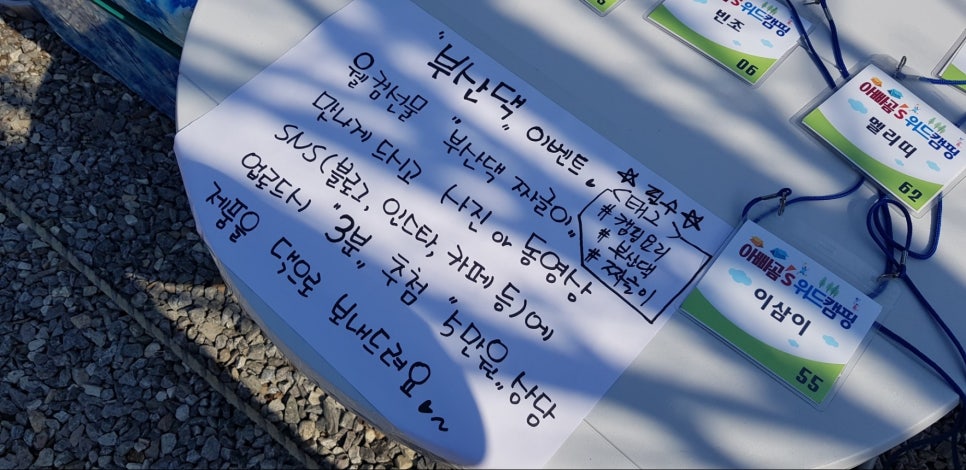 "부산댁" 이벤트
웰컴선물 "부산댁 짜글이"
맛나게 드시고 (사진 or 동영상
SNS(블로그, 인스타, 카페 등)에
업로드시 "3분" 추첨 "5만원" 상당
제품을 댁으로 보내드려요
☆ 필수 ☆
<태그>
# 캠핑요리
# 부산댁
# 짜글이
빈조
06
아빠곰'S 위드캠핑
멜리띠
62
아빠곰'S 위드캠핑
이삼이
55